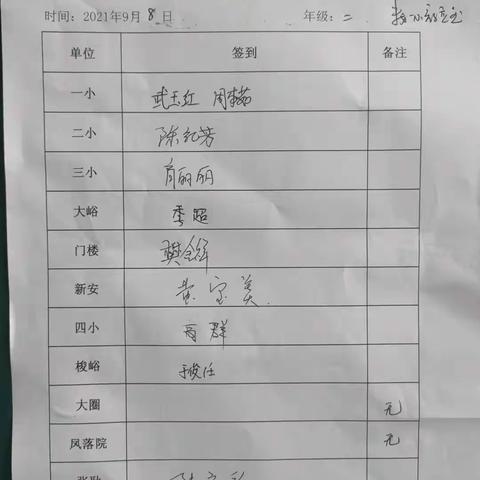 时间：2021年9月8日 年级：二
单位 签到 备注
一小 武玉红
二小 陈红芳
三小 肖丽丽
大峪 季超
门楼 樊
新安 黄宝美
四小 高群
梭峪 于俊任
大圈 无
凤落院 无